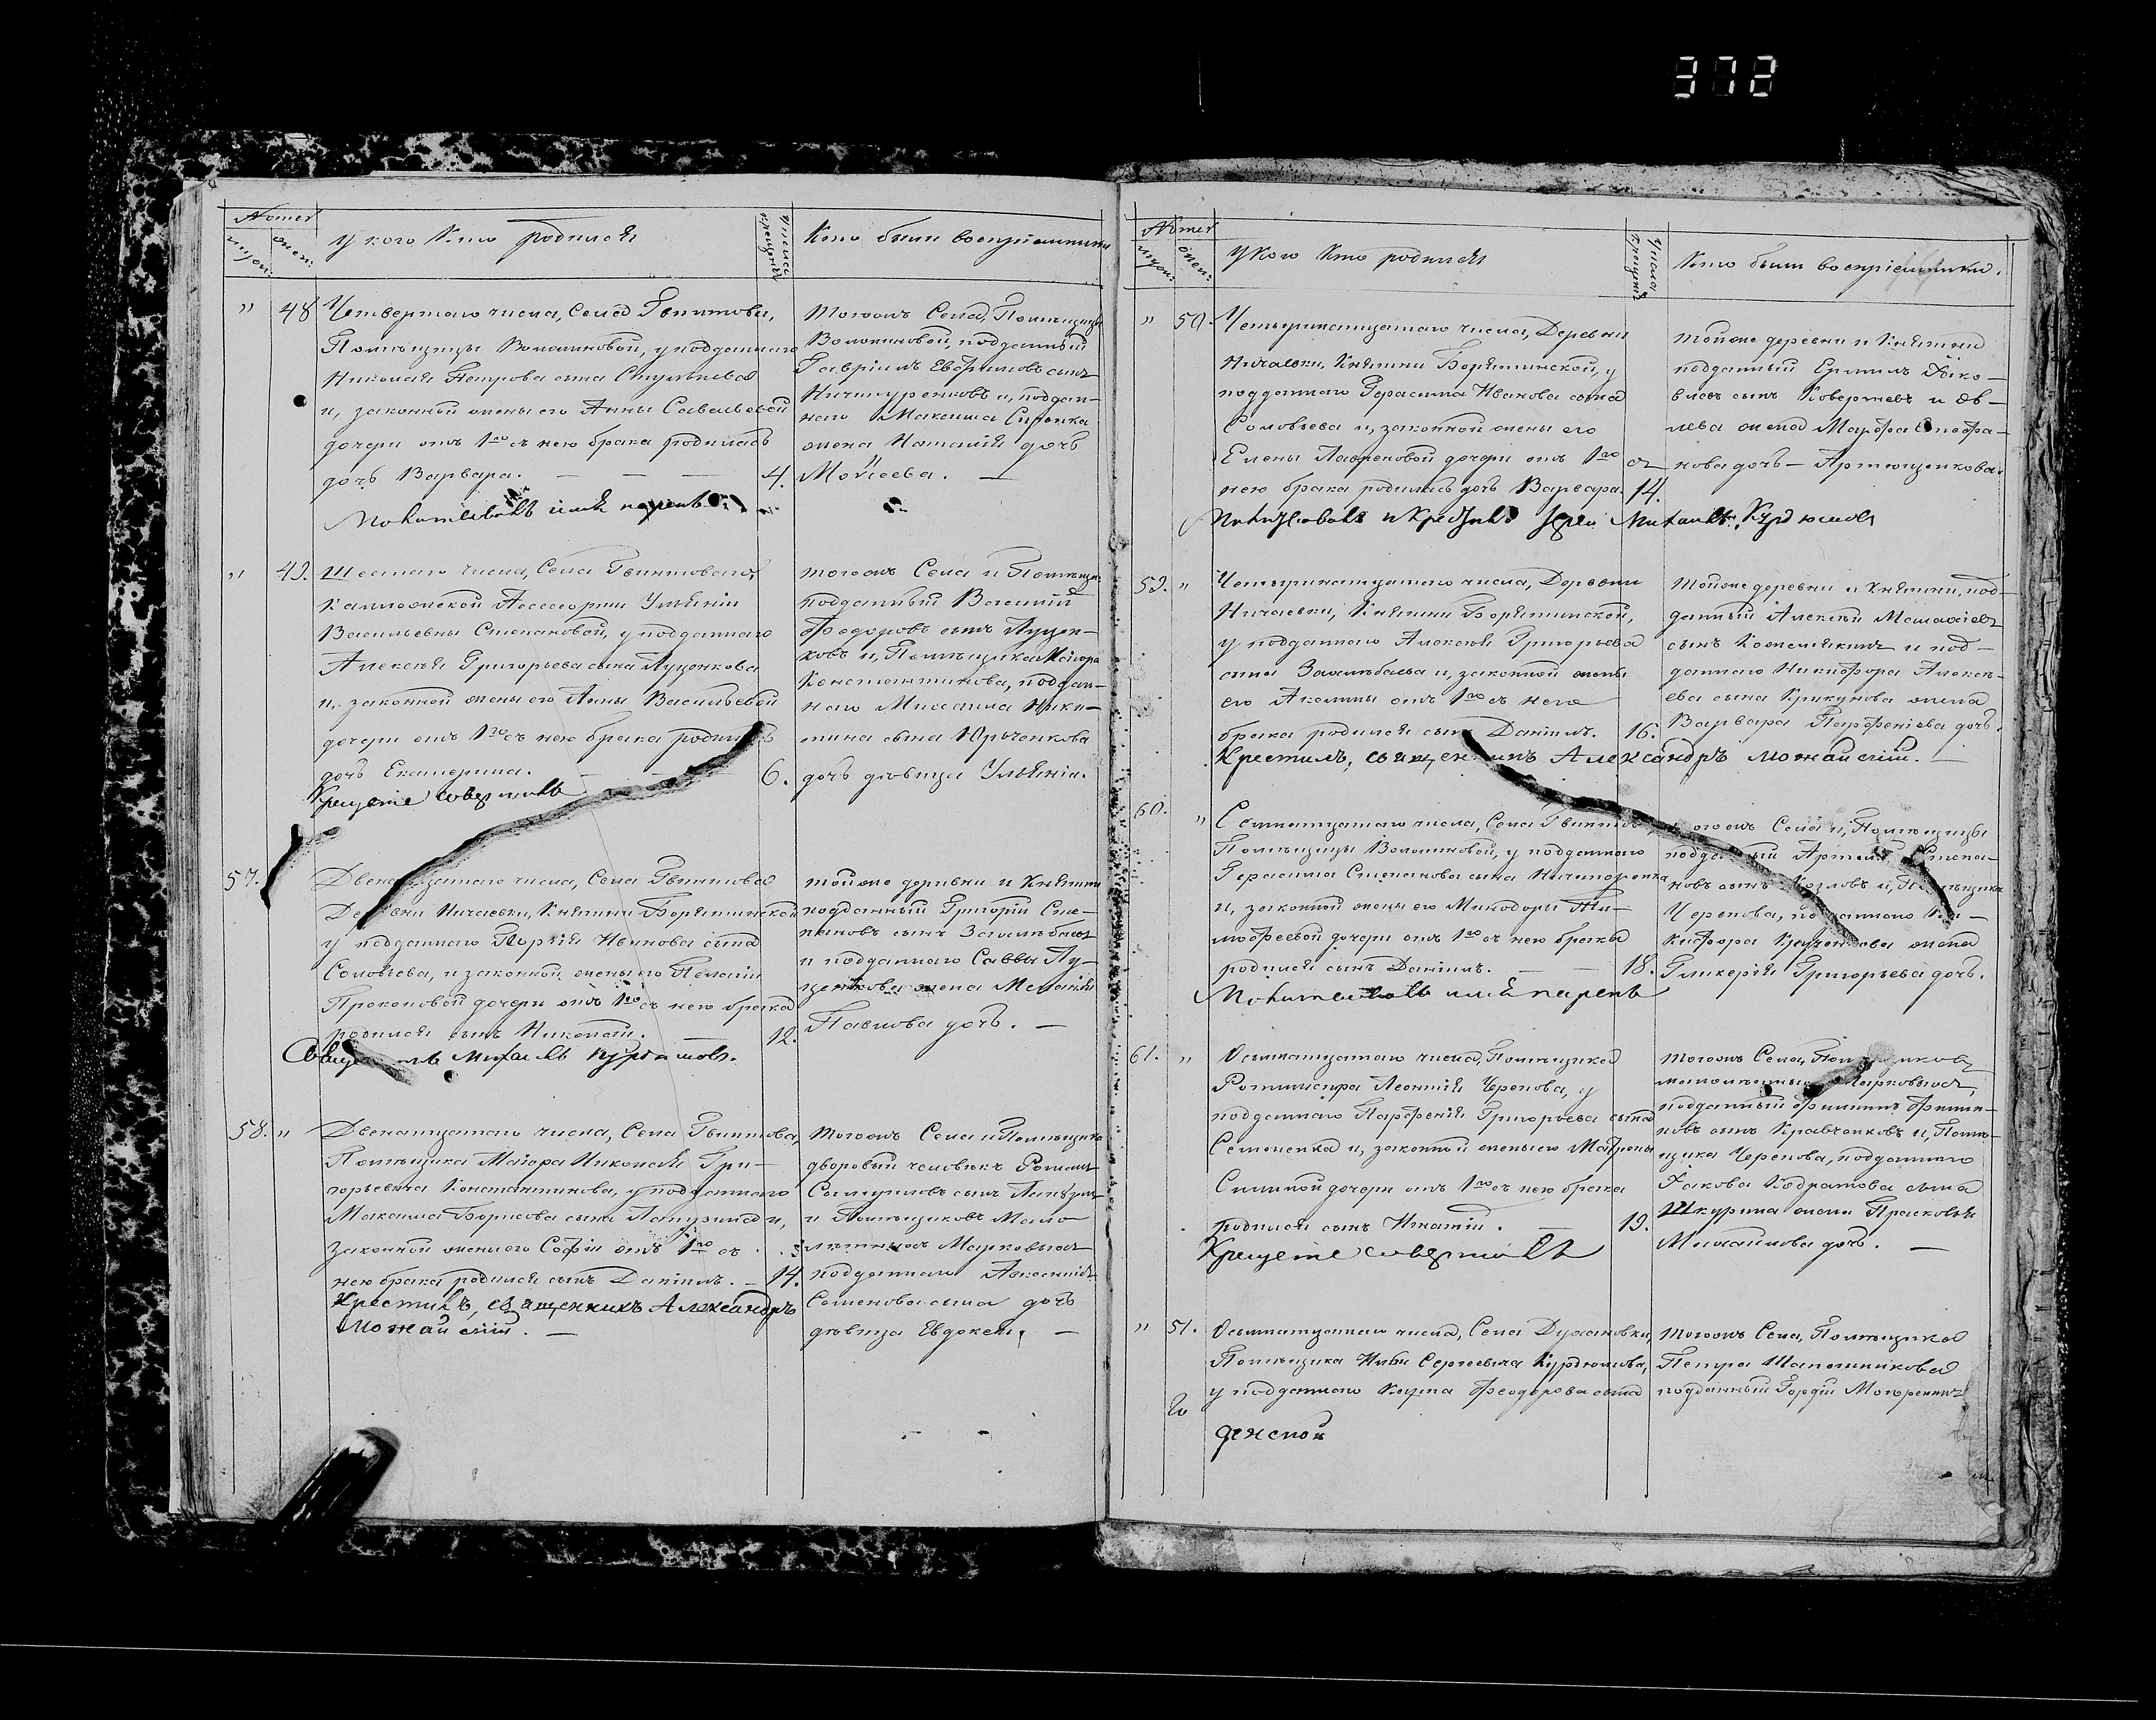 372
Номеръ
мужес:
женс:
У кого кто родился
Числа крещенія
Кто были воспріемники
" 48
Четвертаго числа, Села Гвинтова,
Помѣщицы Волошиновой, у подданнаго
Николая Петрова сына
и, законной жены его Анны Савельевой
дочери отъ 1го съ нею брака родилась
дочь Варвара. — — — 4.
Молитвовалъ
тогожъ Села, Помѣщицы
Волошиновой, подданный
Гавріилъ Евфимовъ сынъ
Ничипуренковъ и, поддан-
наго Максима
жена Наталія дочь
Мойсеева. —
" 49.
Шестаго числа, Села Гвинтоваго,
Василіевны Степановой, у подданнаго
Алексѣя Григорьева сына Луценкова
и, законной жены его Анны Васильевой
дочери отъ 1го съ нею брака родилась
дочь Екатерина. — — 6.
Крещеніе совершалъ
тогожъ Села и Помѣщицы
подданный Василій
Федоровъ сынъ Луцен-
ковъ и, Помѣщика Маіора
Константинова, поддан-
наго Михаила Ники-
тина сына Юрченкова
дочь дѣвица Ульянія.
57.
числа, Села Гвинтова
Деревни Ничаевки, Княгини Борятинской
у подданнаго Георгія Иванова сына
Соловьева, и законной жены его Пелагіи
Прокоповой дочери отъ 1го съ нею брака
родился сынъ Николай. — 12.
Михаилъ Курдюмовъ.
тойже деревни и Княгини
подданный Григорій Сте-
пановъ сынъ
и подданнаго Саввы Лу-
ценкова жена Меланія
Павлова дочь. —
58. "
Двенатцатаго числа, Села Гвинтова,
Помѣщика Маіора Николая Гри-
горьевича Константинова, у подданнаго
Максима Борисова сына Лапузина и,
законной жены его Софіи отъ 1го съ
нею брака родился сынъ Даніилъ. — 14.
Крестилъ, священникъ Александръ
Можайскій. —
тогожъ Села и Помѣщика
дворовый человѣкъ Романъ
Самуиловъ сынъ Лапузинъ
и Помѣщиковъ Мало-
лѣтныхъ Марковыхъ
подданнаго
Семенова сына дочь
дѣвица Евдокія. —
Номеръ
мужес:
женс:
У кого кто родился
Числа крещенія
Кто были воспріемники.
" 50.
Четырнатцатаго числа, Деревни
Ничаевки, Княгини Борятинской, у
подданнаго Герасима Иванова сына
Соловьева и, законной жены его
Елены Лавреновой дочери отъ 1го съ
нею брака родилась дочь Варвара. 14.
Молитвовалъ и Крестилъ Іерей Михаилъ Курдюмовъ
тойже деревни и Княгини
подданный Ермилъ Яко-
влевъ сынъ Ковержневъ и
жена Марфа
нова дочь — Артющенкова.
59. "
Четырнатцатаго числа, Деревни
Ничаевки, Княгини Борятинской,
у подданнаго Алексѣя Григорьева
сына и, законной жены
его Акилины отъ 1го съ нею
брака родился сынъ Даніилъ. 16.
Крестилъ, священникъ Александръ Можайскій. —
тойже деревни и Княгини, под-
данный Алексѣй
сынъ Кожемякинъ и под-
даннаго Никифора Алексѣ-
ева сына Крикунова жена
Варвара Парфеніева дочь.
60. "
Семнатцатаго числа, Села Гвинтова,
Помѣщицы Волошиновой, у подданнаго
Герасима Степанова сына Ничипоренка
и, законной жены его Минодоры Ти-
мофеевой дочери отъ 1го съ нею брака
родился сынъ Даніилъ. — — 18.
Молитвовалъ
тогожъ Села и, Помѣщицы
подданный Степа-
новъ сынъ Козловъ и, Помѣщика
Черепова, подданнаго Ни-
кифора жена
Гликерія Григорьева дочь.
61. "
Осьмнатцатаго числа, Помѣщика
Ротмистра Леонтія Черепова, у
подданнаго Парфенія Григорьева сына
Семененка и, законной жены его Матроны
дочери отъ 1го съ нею брака
родился сынъ Игнатій. — 19.
Крещеніе совершалъ
тогожъ Села, Помѣщиковъ
малолѣтныхъ Марковыхъ,
подданный Филиппъ Филип-
повъ сынъ Кравченковъ и, Помѣ-
щика Черепова, подданнаго
Іакова Кодратова сына
Шкурина жена Прасковія
Михайлова дочь. —
" 51.
Осьмнатцатаго числа, Села Духановки,
Помѣщика Ильи Сергеевича Курдюмова,
у подданнаго Карпа Феодорова сына
тогожъ Села, Помѣщика
Петра Шапошникова
подданный Гордій
женской